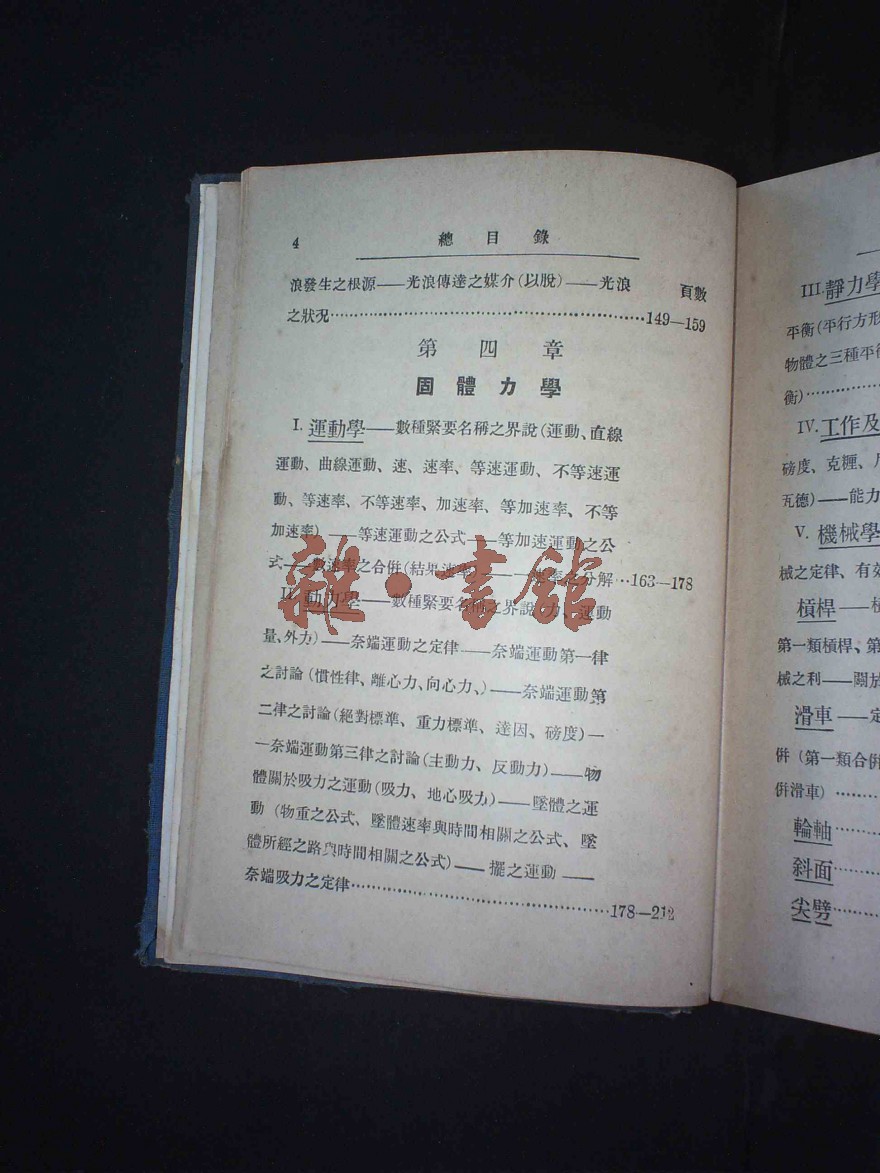 4 總目錄
浪發生之根源——光浪傳達之媒介(以脫)——光浪 頁數
之狀況…………149—159
第四章
固體力學
I. 運動學——數種緊要名稱之界說(運動、直線
運動、曲線運動、速、速率、等速運動、不等速運
動、等速率、不等速率、加速率、等加速率、不等
加速率)——等速運動之公式——等加速運動之公
式——數速率之合併(結果速率)——速率之分解…163—178
II. 動力學——數種緊要名稱之界說(力、運動
量、外力)——奈端運動之定律——奈端運動第一律
之討論(慣性律、離心力、向心力、)——奈端運動第
二律之討論(絕對標準、重力標準、達因、磅度)—
—奈端運動第三律之討論(主動力、反動力)——物
體關於吸力之運動(吸力、地心吸力)——墜體之運
動(物重之公式、墜體速率與時間相關之公式、墜
體所經之路與時間相關之公式)——擺之運動——
奈端吸力之定律…………178—212
雜·書館
III. 靜力學
平衡(平行方形
物體之三種平
衡)…………
IV. 工作及
磅度、克糎、
瓦德)——能力
V. 機械學
械之定律、有效
槓桿——
第一類槓桿、第
械之利——關於
滑車——定
併(第一類合併
併滑車)…………
輪軸…………
斜面…………
尖劈…………